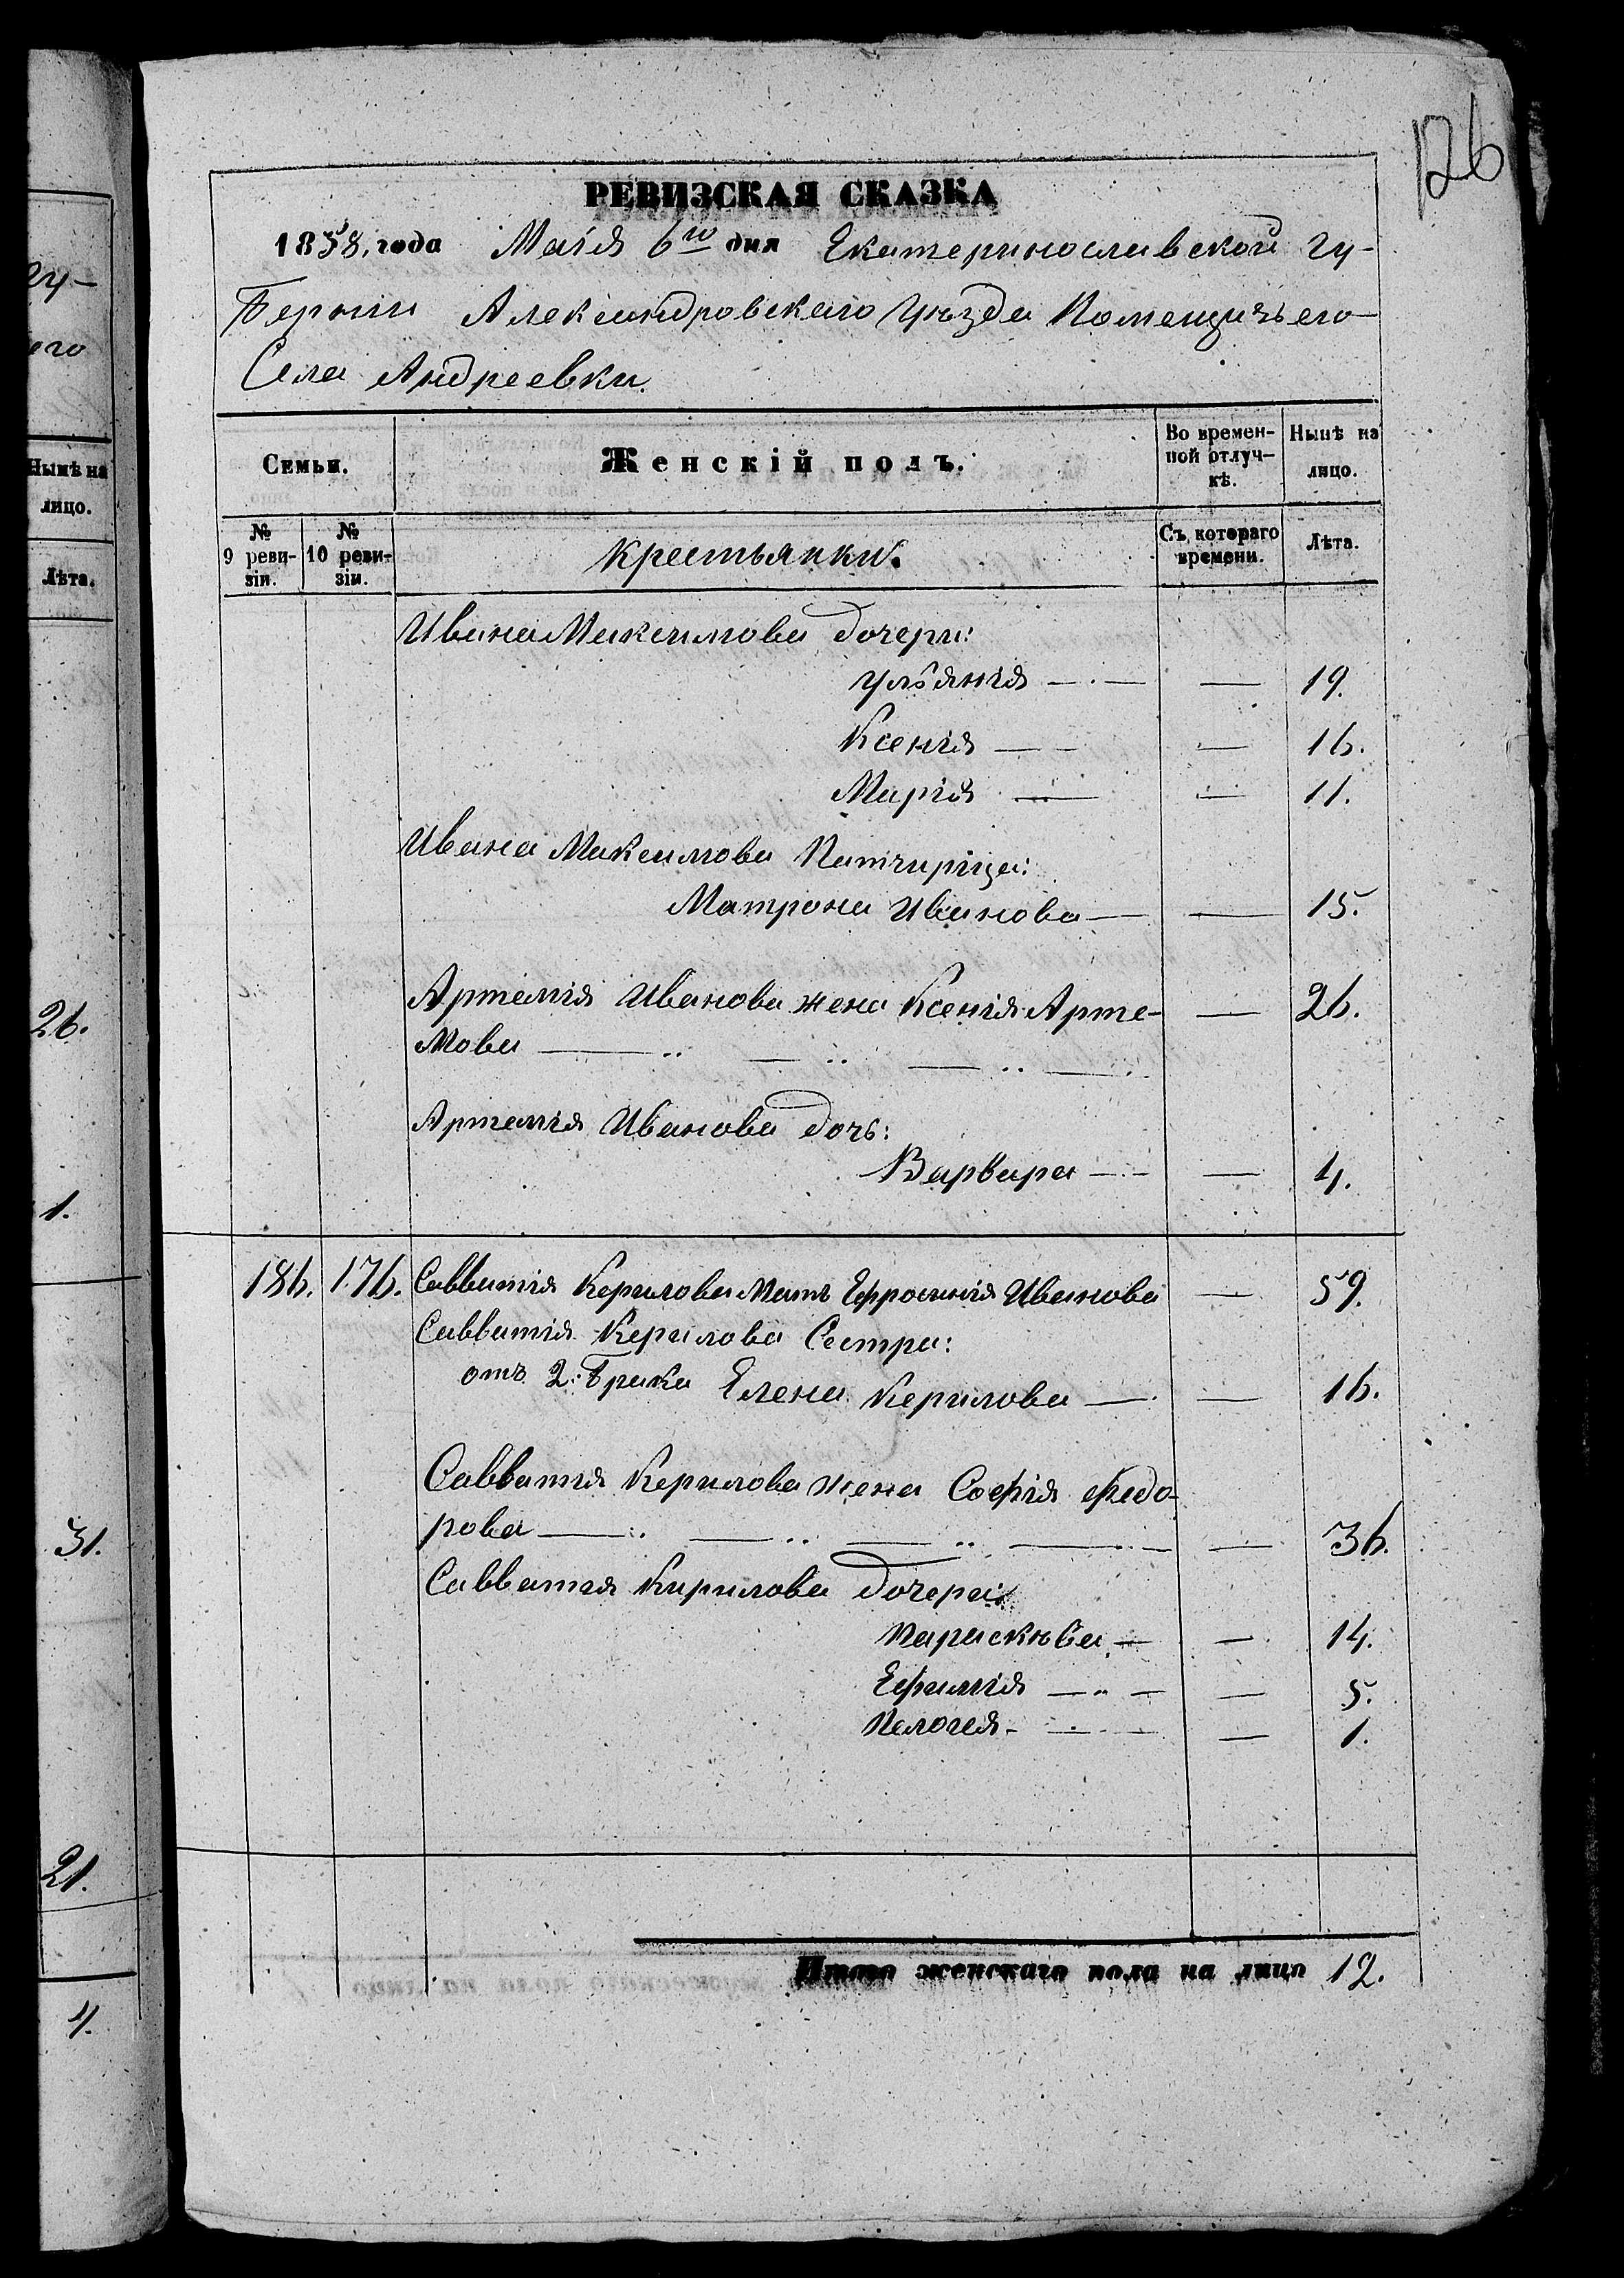 126
РЕВИЗСКАЯ СКАЗКА
1858, года Маія 6го дня Екатеринославской гу-
берніи Александровскаго Уѣзда Помещичьего
Села Андреевки.
Семьи.
Женскій полъ.
Во времен-
ной отлуч-
кѣ.
Нынѣ на
лицо.
№
9 реви-
зіи.
№
10 реви-
зіи.
Крестьянки.
Съ котораго
времени.
Лѣта.
Ивана Максимова дочери:
Ульянія — — 19.
Ксенія — — 16.
Марія — — 11.
Ивана Максимова Патчирица:
Матрона Иванова — — 15.
Артемія Иванова жена Ксенія Арте- — 26.
мова
Артемія Иванова дочь:
Варвара — — 4.
186. 176. Савватія Керилова Мать Ефросинія Иванова — 59.
Савватія Керилова Сестра:
отъ 2. брака Елена Керилова — — 16.
Савватія Керилова жена Софія Федо-
рова — — 36.
Савватия Кирилова дочери:
Параскѣва — — 14.
Ефимія — — 5.
Пелогея — — 1.
Итого женскаго пола на лицо 12.
гу-
его
Нынѣ на
лицо.
Лѣта.
26.
1.
31.
21.
4.